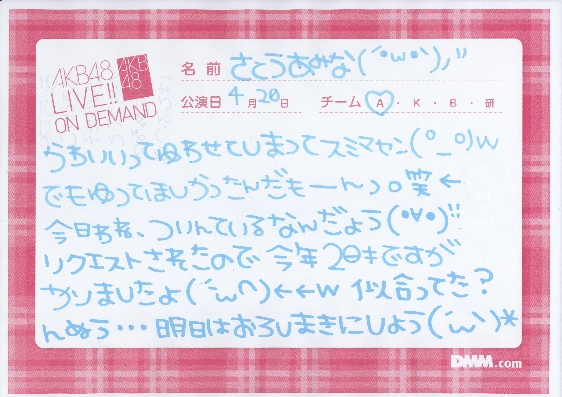 AKB48
LIVE!!
ON DEMAND
AKB
48
名前 さとうあみな(´•ω•`)ノ"
公演日 4月20日 チーム A・K・B・研
かわいいってゆわせてしまってスミマセン(°_°)w
でもゆってほしかったんだもーんっ。笑←
今日わね、ついんているなんだよう(•∀•)!!
リクエストされたので今年20才ですが
やりましたよ(´ω`)←←w 似合ってた?
んぬぅ…明日はおろしまきにしよう(´ω`)*
DMM.com